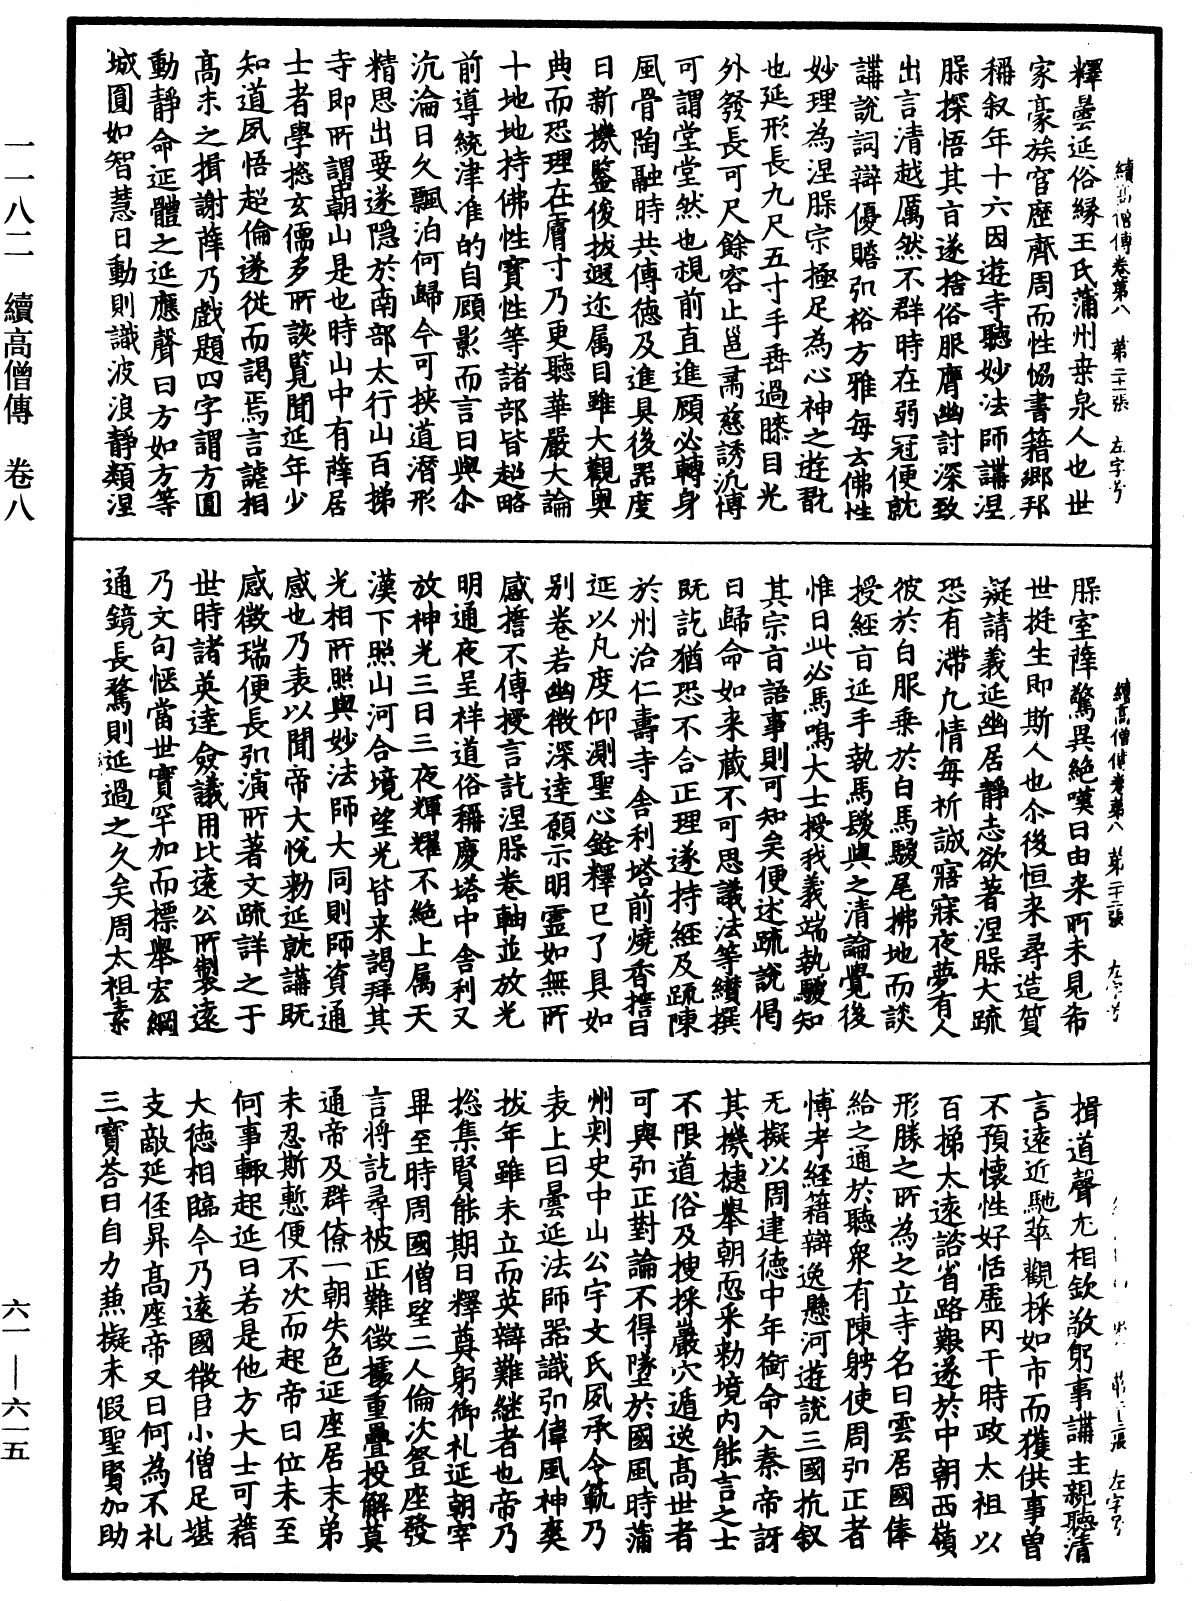 一一八二　續高僧傳　卷八
續高僧傳卷第八　第二十一張　左字号
釋曇延俗緣王氏蒲州桒泉人也世
家豪族官歷齊周而性恊書籍鄉邦
稱叙年十六因遊寺聽妙法師講涅
脵探悟其旨遂捨俗服膺幽討深致
出言清越厲然不群時在弱冠便就
講說詞辯優贍弘裕方雅每云佛性
妙理為涅脵宗極足為心神之遊翫
也延形長九尺五寸手垂過膝目光
外發長可尺餘容止邕肅慈誘汎博
可謂堂堂然也視前直進顧必轉身
風骨陶融時共傳德及進具後器度
日新機鑒俊拔遐迩属目雖大觀奧
典而恐理在膚寸乃更聽華嚴大論
十地地持佛性寶性等諸部皆超略
前導統津准的自顧影而言曰與尒
沉淪日久飄泊何歸今可挾道潛形
精思出要遂隱於南部太行山百梯
寺即所謂中朝山是也時山中有薛居
士者學揔玄儒多所該覽聞延年少
知道夙悟超倫遂從而謁焉言謔相
高未之揖謝薛乃戲題四字謂方圓
動靜命延體之延應聲曰方如方等
城圓如智慧日動則識波浪靜類涅
續高僧傳卷第八　第二十二張　左字号
脵室薛驚異絕嘆曰由来所未見希
世挺生即斯人也尒後恒来尋造質
疑請義延幽居靜志欲著涅脵大疏
恐有滯凡情每祈誠寤寐夜夢有人
彼於白服乗於白馬騣尾拂地而談
授經旨延手執馬騣與之清論覺後
惟曰此必馬鳴大士授我義端執騣知
其宗旨語事則可知矣便述疏說偈
曰歸命如来藏不可思議法等纉撰
既訖猶恐不合正理遂持經及疏陳
於州治仁壽寺舍利塔前燒香誓曰
延以凡度仰測聖心銓釋已了具如
別卷若幽微深達願示明靈如無所
感誓不傳授言訖涅脵卷軸並放光
明通夜呈祥道俗稱慶塔中舍利又
放神光三日三夜輝耀不絕上属天
漢下照山河合境望光皆来謁拜其
光相所照與妙法師大同則師資通
感也乃表以聞帝大悅勑延就講既
感徵瑞便長弘演所著文疏詳之于
世時諸英達僉議用比遠公所製遠
乃文句愜當世實罕加而標舉宏綱
通鏡長騖則延過之久矣周太祖素
左字号
揖道聲尤相欽敬躬事講主親聽清
言遠近馳萃觀採如市而獲供事曽
不預懷性好恬虛罔干時政太祖以
百梯太遠諮省路艱遂於中朝西嶺
形勝之所為之立寺名曰雲居國俸
給之通於聽衆有陳躬使周弘正者
博考經籍辯逸懸河遊說三國抗叙
无擬以周建德中年銜命入秦帝訝
其機捷舉朝恧采勑境内能言之士
不限道俗及搜採巖穴遁逸高世者
可與弘正對論不得墜於國風時蒲
州刾史中山公宇文氏夙承令軌乃
表上曰曇延法師器識弘偉風神爽
拔年雖未立而英辯難継者也帝乃
揔集賢能期日釋奠躬御礼延朝宰
畢至時周國僧望二人倫次登座發
言將訖尋被正難徵據重疊投解莫
通帝及群僚一朝失色延座居末弟
未忍斯慙便不次而起帝曰位未至
何事輙起延曰若是他方大士可藉
大德相臨今乃遠國微臣小僧足堪
支敵延徑昇高座帝又曰何為不礼
三寶荅曰自力兼擬未假聖賢加助
六一—六一五